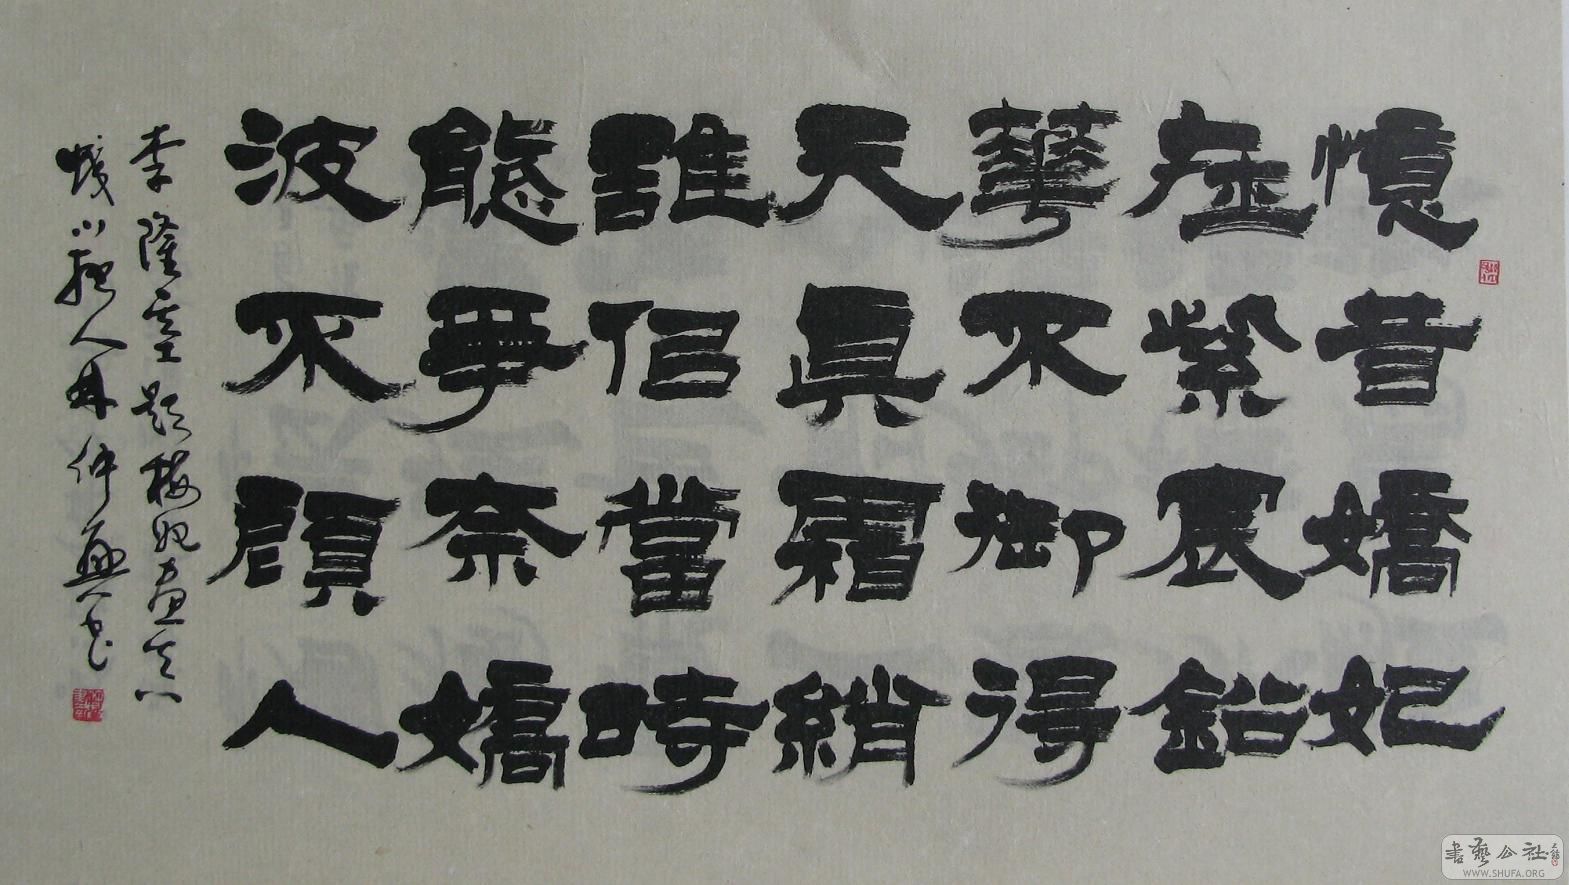 憶昔嬌妃
在紫宸鉛
華不御得
天真霜綃
雖佀當時
態爭奈嬌
波不顧人
李隆基題梅妃畫真
人林仲興書
書藝公社
WWW.SHUFA.ORG